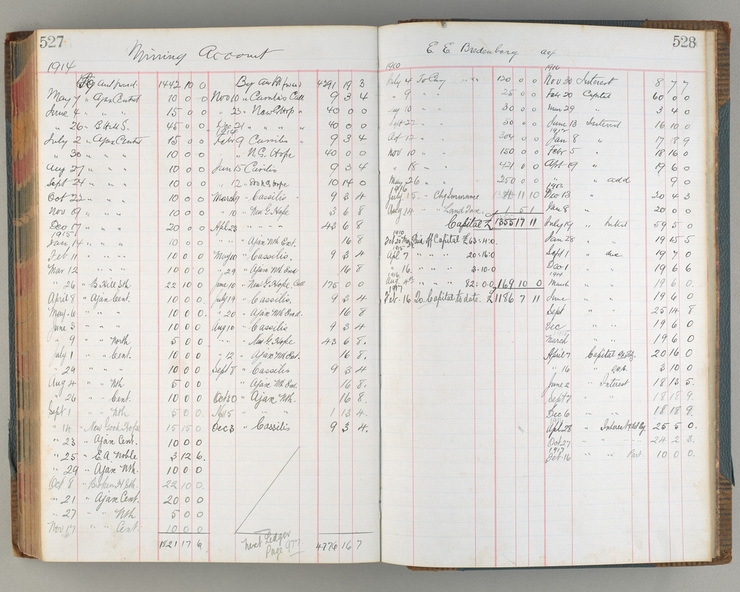 527
Mining Account
1914
By amt forwd. 1442 10 0
May 7 " Ajax Central 10 0 0
June 9 " " 15 0 0
" 26 " B Hill S. 45 0 0
July 2 " Ajax Central 15 0 0
" 30 " " 10 0 0
Aug 27 " " 10 0 0
Sept 24 " " 10 0 0
Oct 22 " " 10 0 0
Nov 19 " " 10 0 0
Dec 17 " " 20 0 0
1915
Jan 14 " " 10 0 0
Feb 11 " " 10 0 0
Mar 12 " " 10 0 0
" 26 " B Hill Sth 22 10 0
April 8 " Ajax Cent. 10 0 0
May 6 " " 10 0 0
June 3 " " 10 0 0
" 9 " " North 5 0 0
July 1 " " Cent. 10 0 0
" 29 " " 10 0 0
Aug 4 " " Nth 5 0 0
" 26 " " Cent. 10 0 0
Sept 1 " " Nth 5 0 0
" 14 " New Good Hope 15 15 0
" 23 " Ajax Cent. 10 0 0
" 25 " E A Noble 3 12 6
" 29 " Ajax Nth. 10 0 0
Oct 8 " Broken H Sth. 22 10 0
" 21 " Ajax Cent. 20 0 0
" 27 " " Nth 5 0 0
Nov 17 " " Cent. 10 0 0
1821 17 6
By amt forwd 4291 19 3
Nov 10 " Cassilis Call 9 3 4
" 23 " New G Hope 40 0 0
Dec 21 " " 40 0 0
Feb 9 Cassilis 9 3 4
" N.G. Hope 40 0 0
Jan 15 Cassilis 9 3 4
" 12 " 10 14 0
March 9 " Cassilis 9 3 4
" 10 " New G Hope 3 6 8
Apl 23 " " 43 6 8
" Ajax Nth Ext. 16 8
May 10 " Cassilis. 9 3 4
" 29 " Ajax Nth 16 8
June 10 " New G Hope 175 0 0
July 14 " Cassilis 9 3 4
" 20 " Ajax Nth 16 8
Aug 10 " Cassilis 9 3 4
" New G Hope 43 6 8
" 12 " Ajax Nth 16 8
Sept 8 " Cassilis 9 3 4
" Ajax Nth 16 8
Oct 20 " Ajax Nth. 16 8
Nov 5 " " 1 13 4
Dec 3 " Cassilis 9 3 4
next Ledger
Page 977
4776 16 7
528
E E Bredenberg a/c
1910
July 4 To Cary " " 120 0 0
" 9 " " 25 0 0
Aug 10 " " 30 0 0
Sept 27 " 30 0 0
Oct 17 " 204 0 0
Nov 10 " 150 0 0
" 18 " " 421 0 0
May 26 " " 250 0 0
July 15 " Chq Insurance 11 10
Aug 14 " " Land Tax 1 5 1
Capital £ 1355 17 11
Capital £ 63.4.0.
Apl. 7 " " 20.16.0
" 16 " " 3.10.0
" " 82.0.0 169 10 0
Feb. 16 To Capital to date. £1186 7 11
1910
Nov 30 Interest 8 7 7
Feb 20 Capital 60 0 0
Mar 29 " 3 4 0
June 13 Interest 16 10 0
Jan 8 " 17 8 9
Feb 5 " 19 16 0
Apl 29 " 19 6 0
" add 9 0
Dec 13 " 20 4 3
Jan 8 " 20 0 0
July 19 " Interest 59 5 0
Jan 28 " " 19 15 5
Sept 1 " due 19 7 0
Dec 1 " " 19 6 6
March " " 19 6 0
June " " 19 6 0
Sept " " 25 14 8
Dec " " 19 6 0
March " 19 6 0
April 7 Capital 20 16 0
" 16 " 3 10 0
June 2 " Interest 18 13 5
Sept 7 " " 18 18 9
Dec 6 " " 18 18 9
Apl 28 " Interest 25 5 0
Oct 27 " " 24 2 3
Feb 16 " " 10 0 0